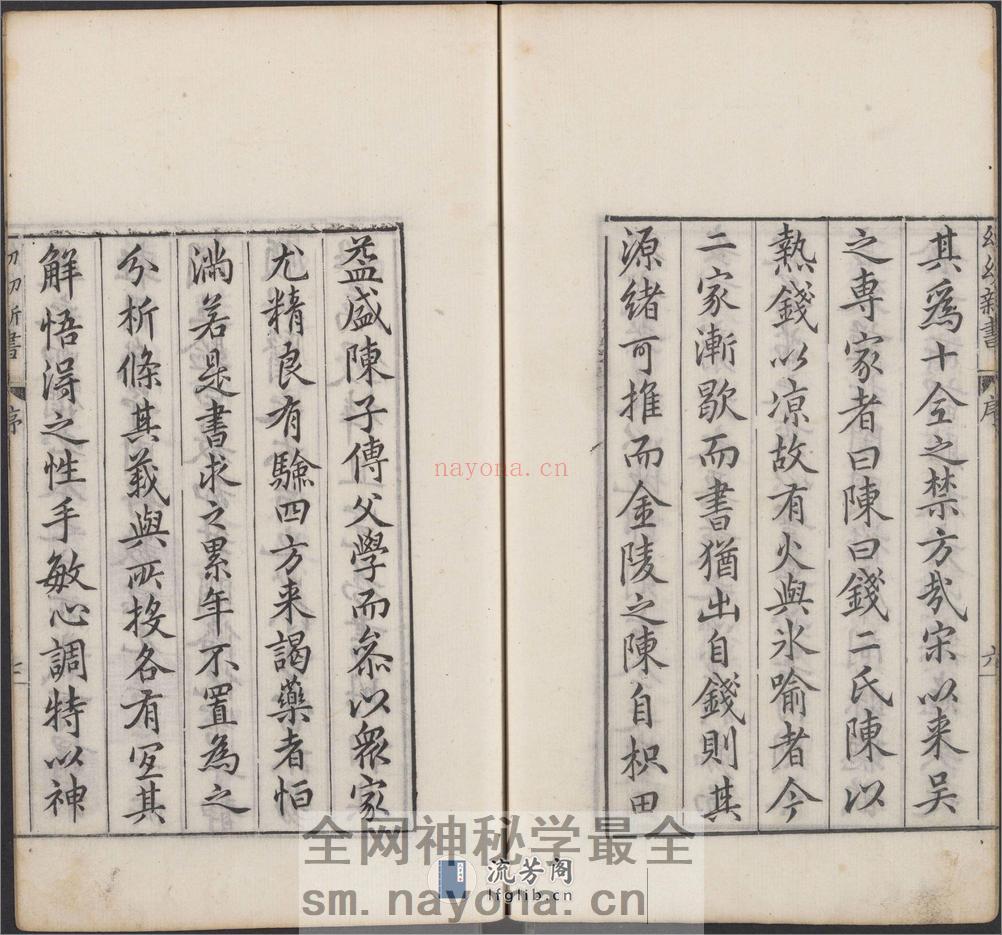 其爲十全之禁方㢤宋以来吴
之専家者曰陳曰錢二氏陳以
熱錢以凉故有火與氷喻者今
二家漸歇而書猶出自錢則其
源緒可推而金陵之陳自枳田
益盛陳子傳父學而叅以衆家
尤精良有驗四方来謁藥者恒
滿若是書求之累年不置為之
分析條其義與所投各有宜其
解悟得之性手敏心調特以神
幼幼新書
序
六
序
nayona.cn
全网神秘学最全
流芳阁
lfglib.cn
sm.nayona.cn